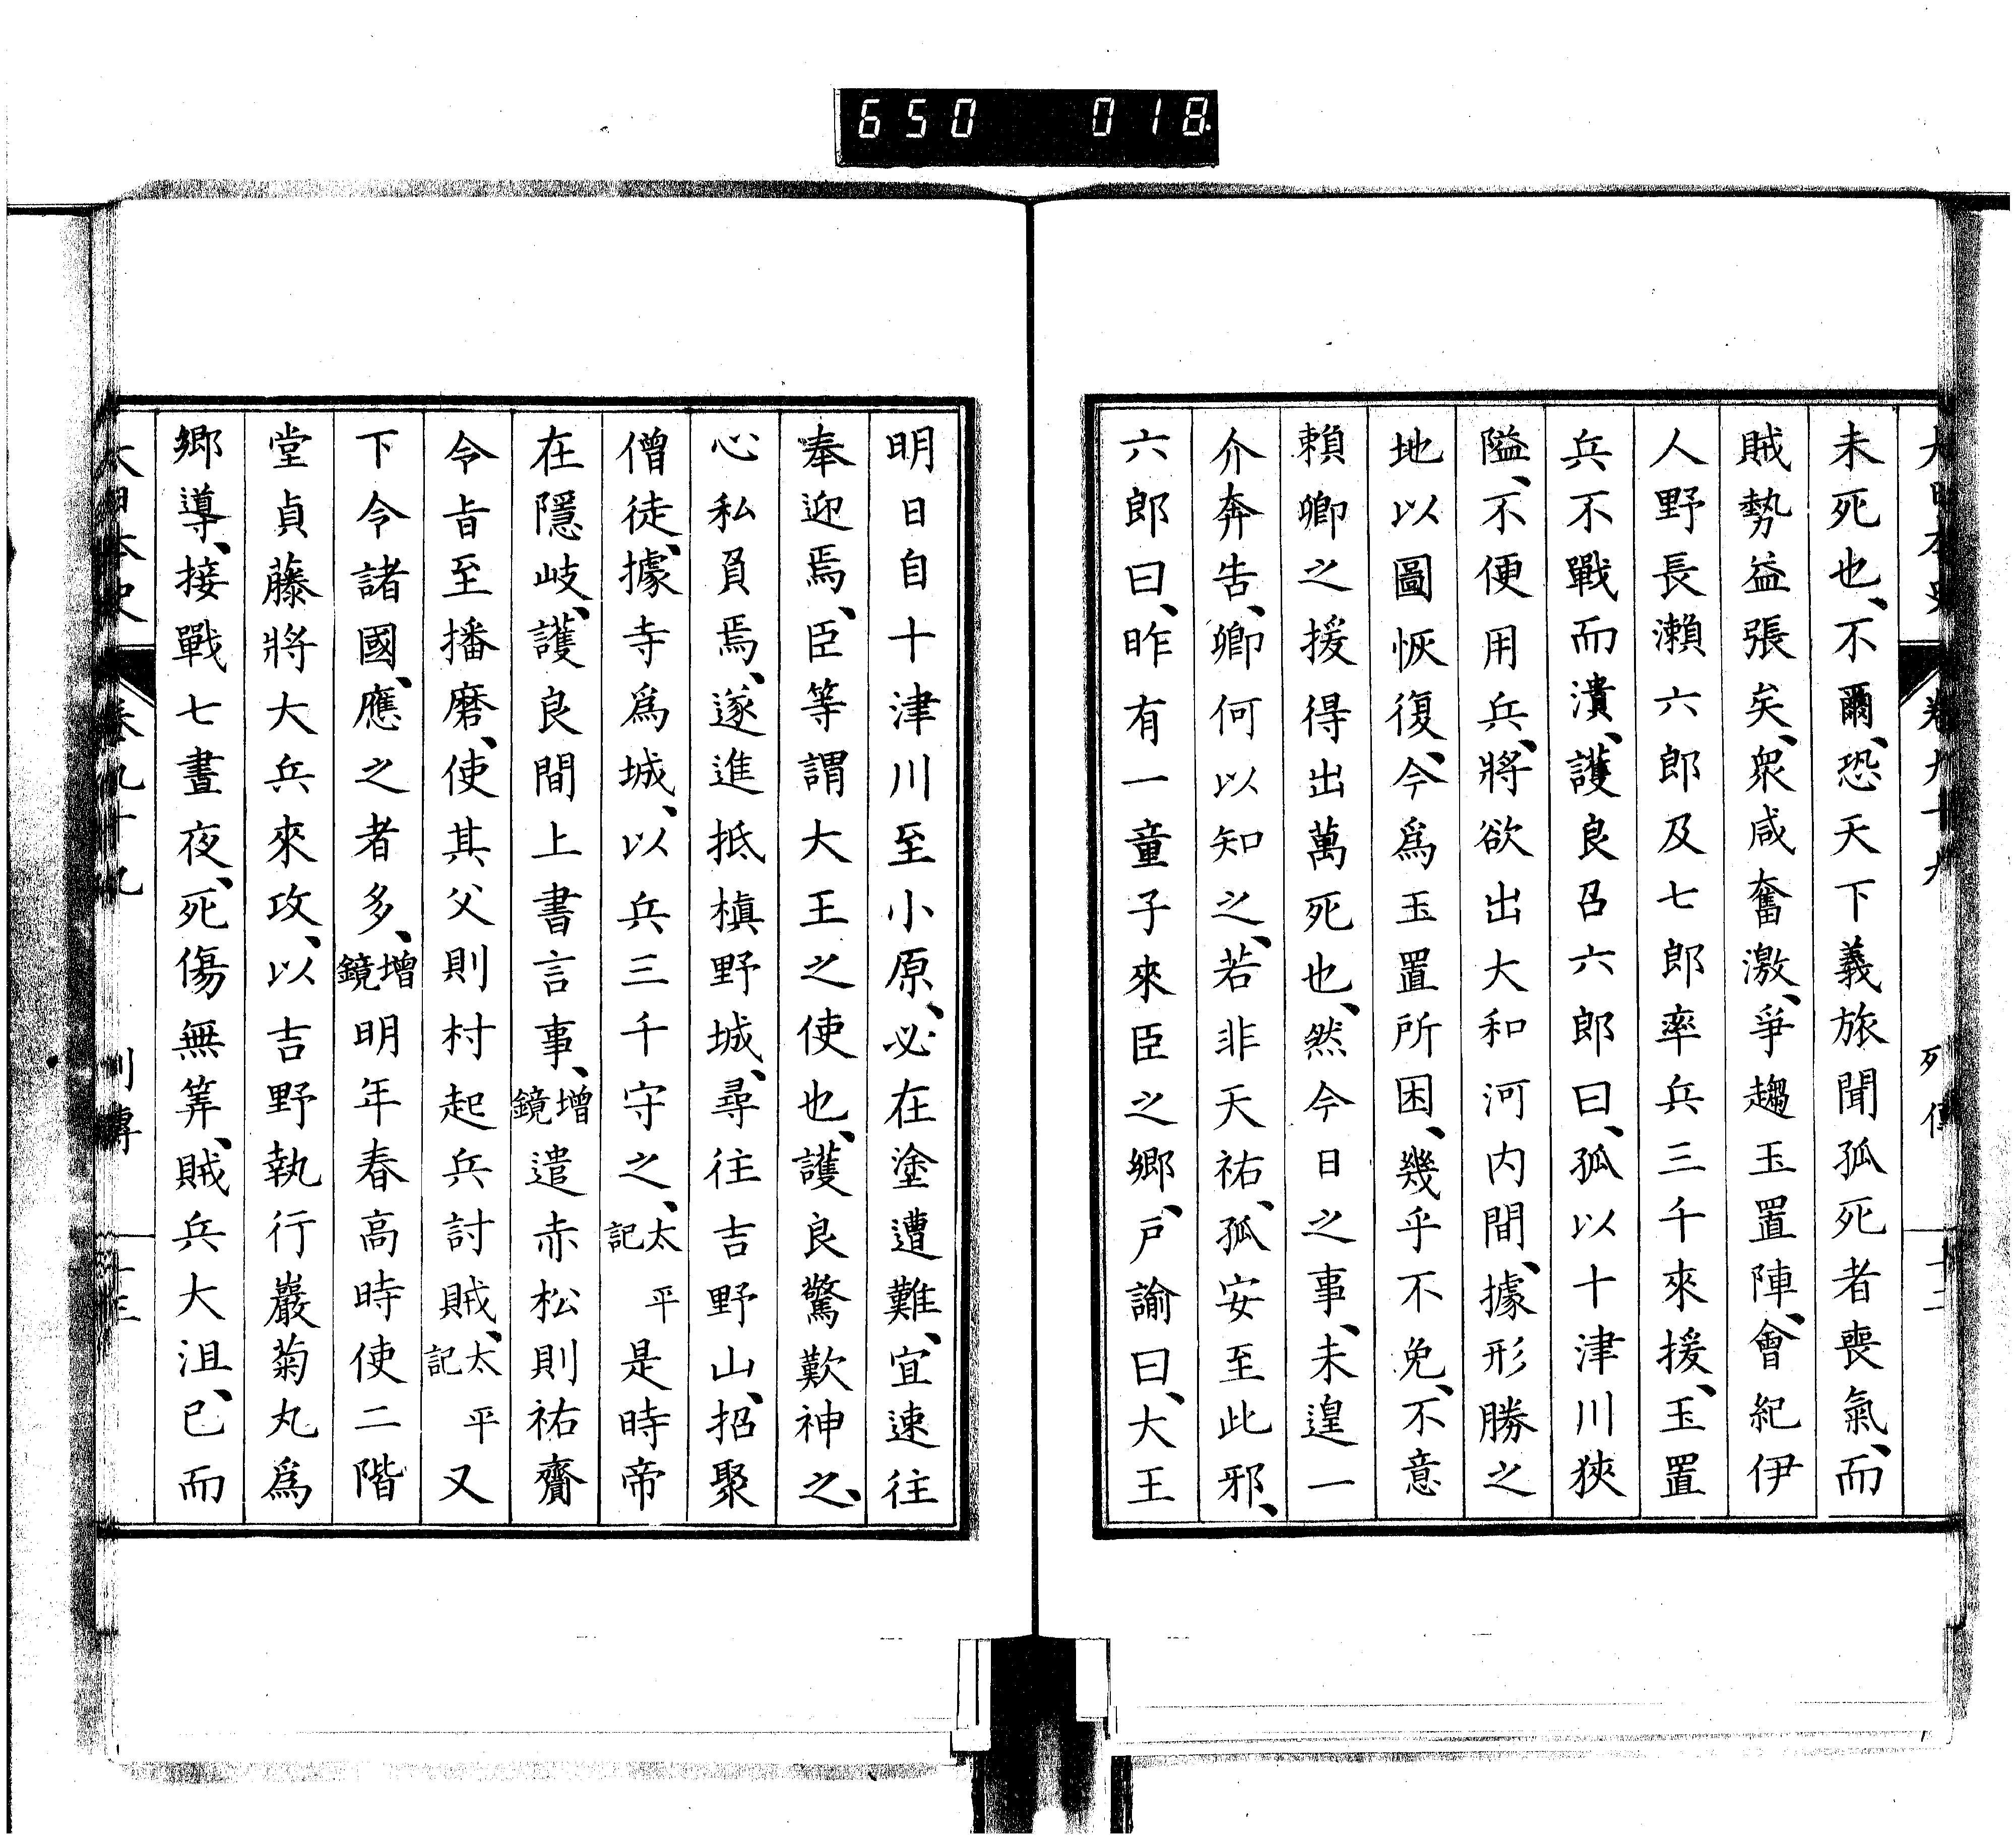 650 018
大日本史 卷九十九 列傳 十二
未死也、不爾、恐天下義旅聞孤死者喪氣、而
賊勢益張矣、衆咸奮激、爭趨玉置陣、會紀伊
人野長瀬六郎及七郎率兵三千來援、玉置
兵不戰而潰、護良召六郎曰、孤以十津川狹
隘、不便用兵、將欲出大和河内間、據形勝之
地以圖恢復、今爲玉置所困、幾乎不免、不意
賴卿之援得出萬死也、然今日之事、未遑一
介奔告、卿何以知之、若非天祐、孤安至此邪、
六郎曰、昨有一童子來臣之郷、戸諭曰、大王
明日自十津川至小原、必在塗遭難、宜速往
奉迎焉、臣等謂大王之使也、護良驚歎神之、
心私負焉、遂進抵槙野城、尋往吉野山、招聚
僧徒、據寺爲城、以兵三千守之、太平記是時帝
在隱岐、護良間上書言事、增鏡遣赤松則祐齎
令旨至播磨、使其父則村起兵討賊、太平記又
下令諸國、應之者多、增鏡明年春高時使二階
堂貞藤將大兵來攻、以吉野執行巖菊丸爲
郷導、接戰七晝夜、死傷無筭、賊兵大沮、已而
大日本史 卷九十九 列傳 十三